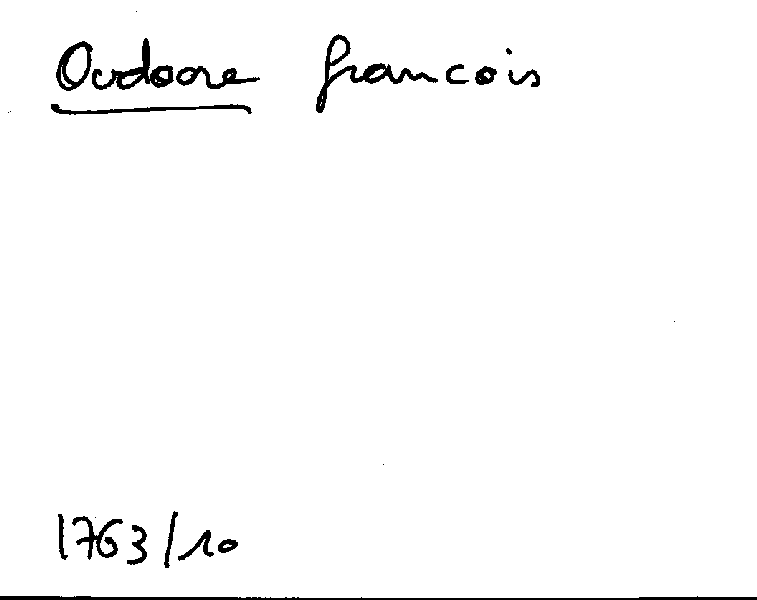 Oudoore francois
1763/10